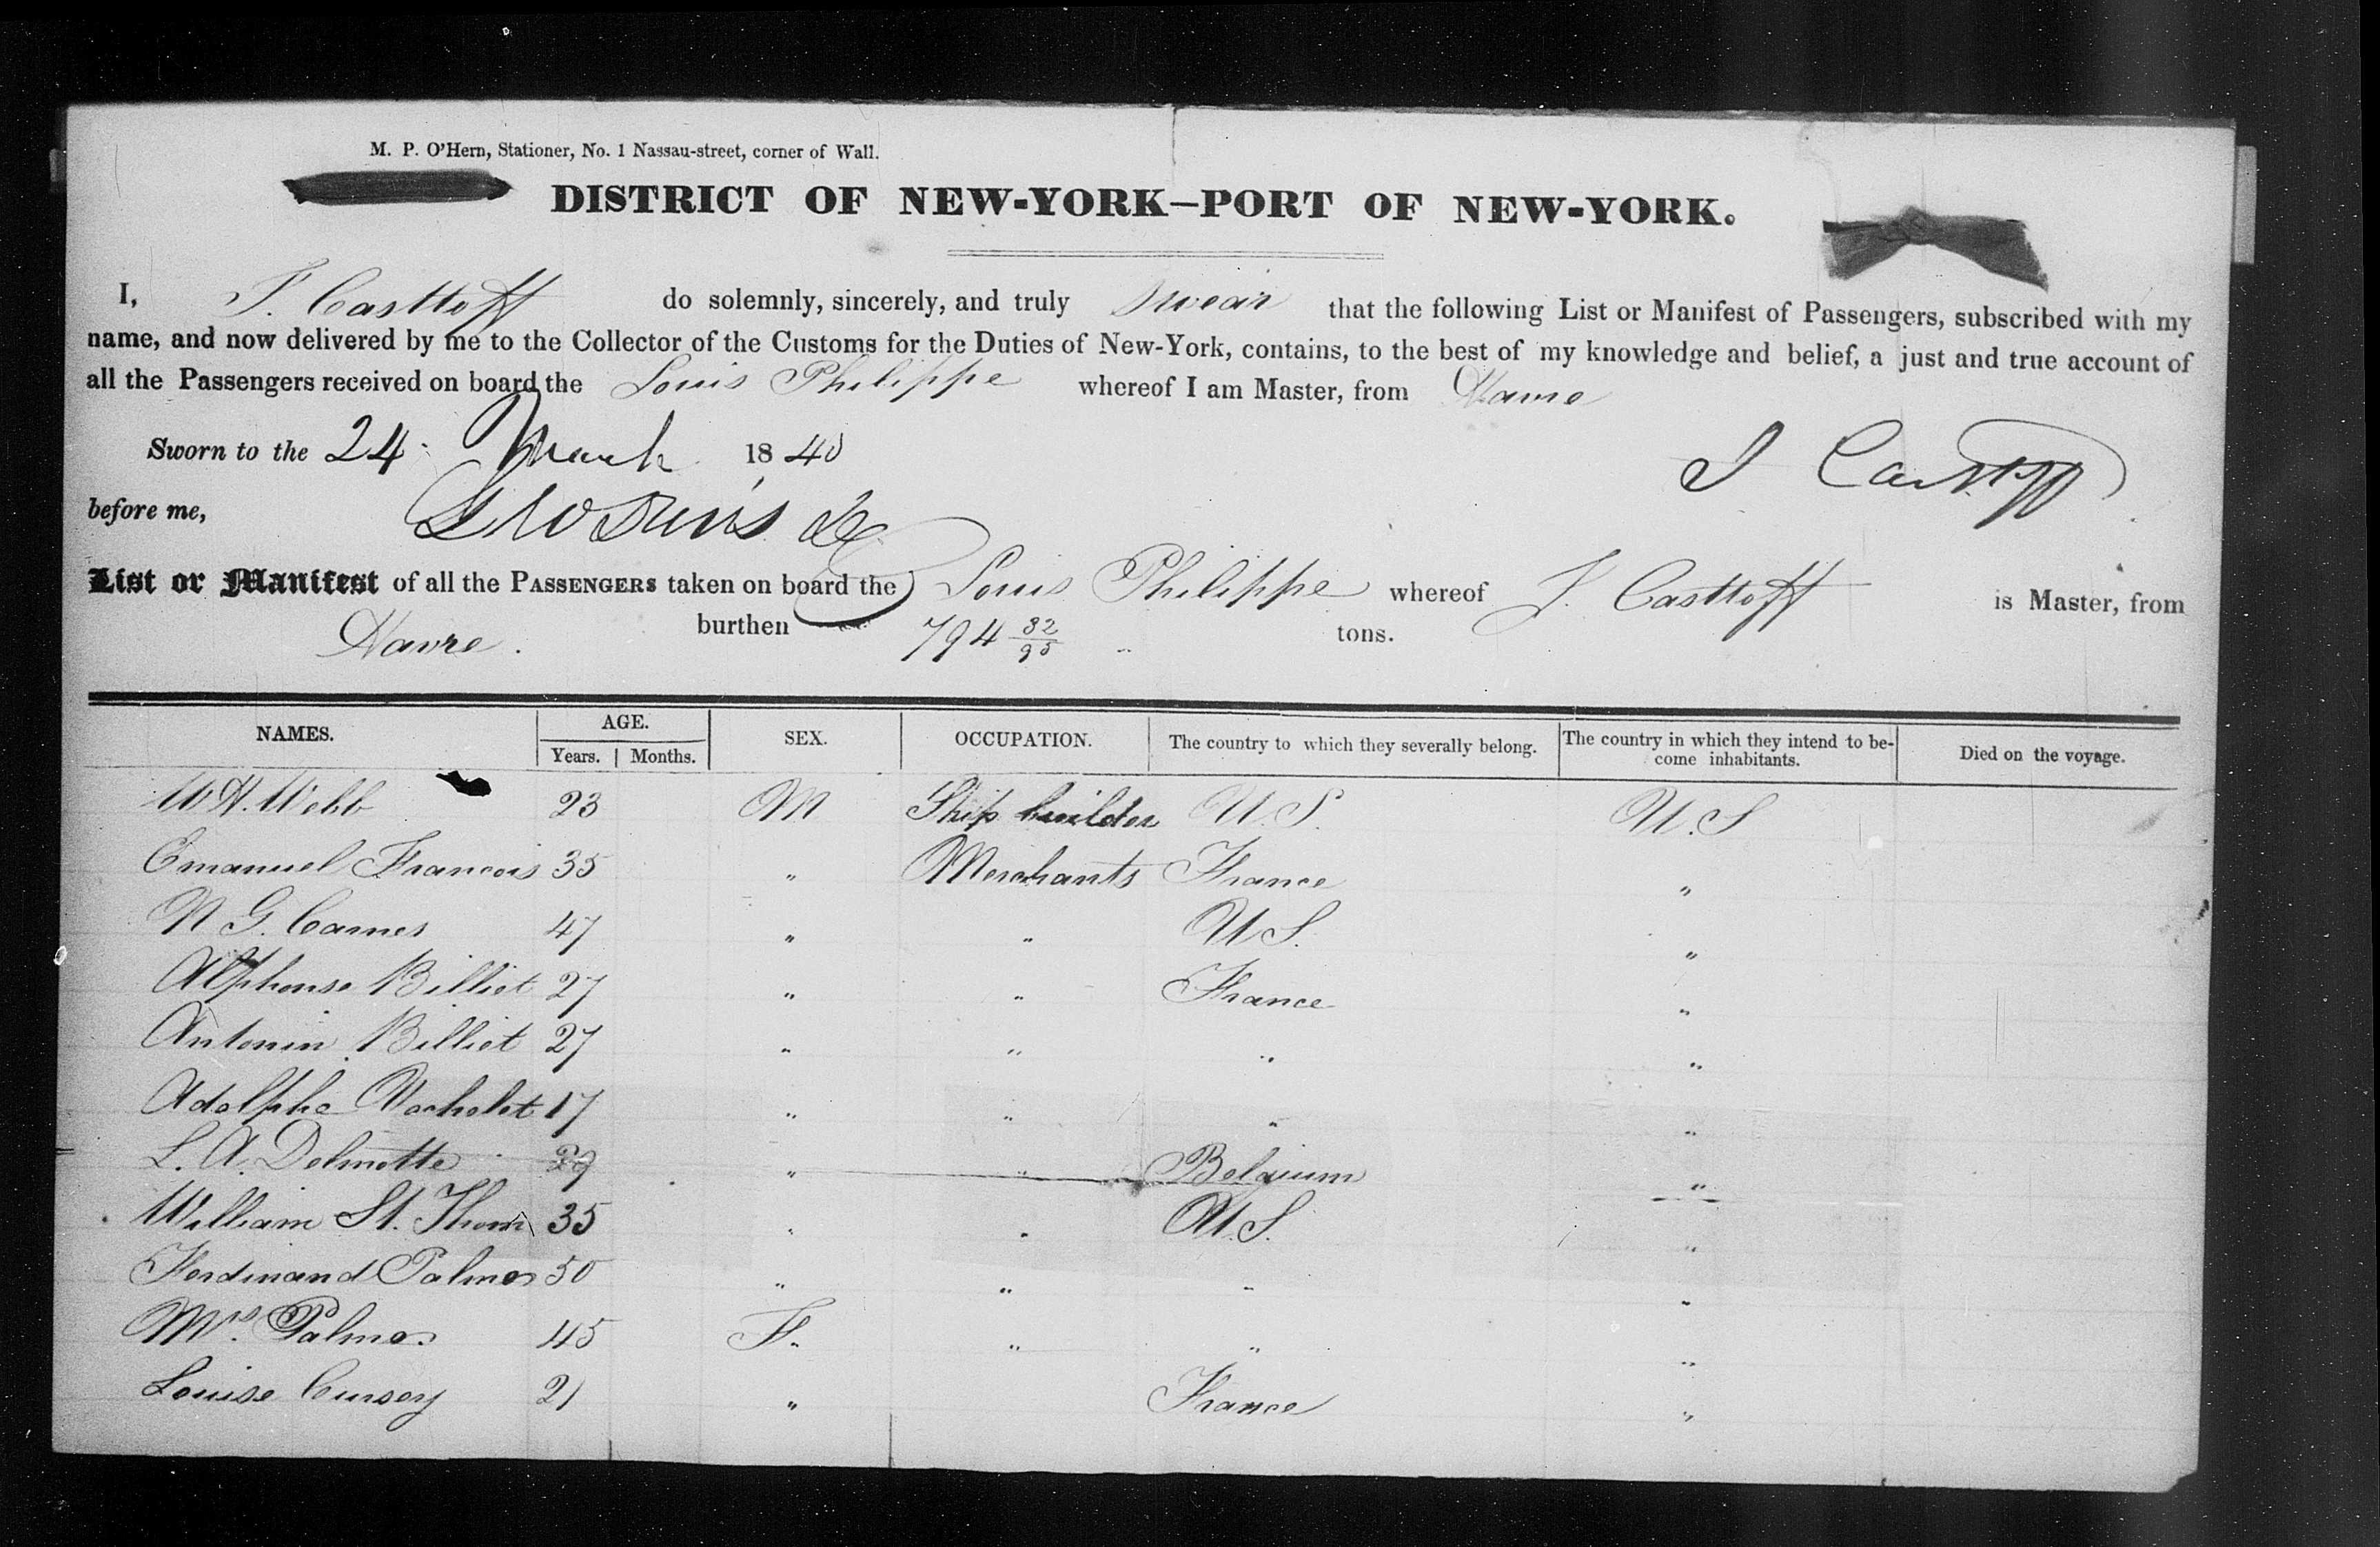 M. P. O'Hern, Stationer, No. 1 Nassau-street, corner of Wall.
DISTRICT OF NEW-YORK—PORT OF NEW-YORK.
I, J. Casttoff do solemnly, sincerely, and truly swear that the following List or Manifest of Passengers, subscribed with my
name, and now delivered by me to the Collector of the Customs for the Duties of New-York, contains, to the best of my knowledge and belief, a just and true account of
all the Passengers received on board the Louis Philippe whereof I am Master, from Havre
Sworn to the 24 March 1840
J Castoff
before me,
List or Manifest of all the PASSENGERS taken on board the Louis Philippe whereof J. Casttoff is Master, from
Havre. burthen 794 32/95 tons.
NAMES. AGE. SEX. OCCUPATION. The country to which they severally belong. The country in which they intend to be-come inhabitants. Died on the voyage.
Years. Months.
W H. Webb 23 M Ship builder U.S. U.S
Emanuel Francois 35 " Merchants France "
N G. Carnes 47 " " U S. "
Alphonse Billiet 27 " " France "
Antonin Billiet 27 " " " "
Adolphe Vachelet 17 " " " "
L. A. Delmotte 29 " " Belgium "
William St. Thom 35 " " U.S. "
Ferdinand Palmer 50 " " " "
Mrs. Palmer 45 F. " " "
Louise Cursey 21 " France "